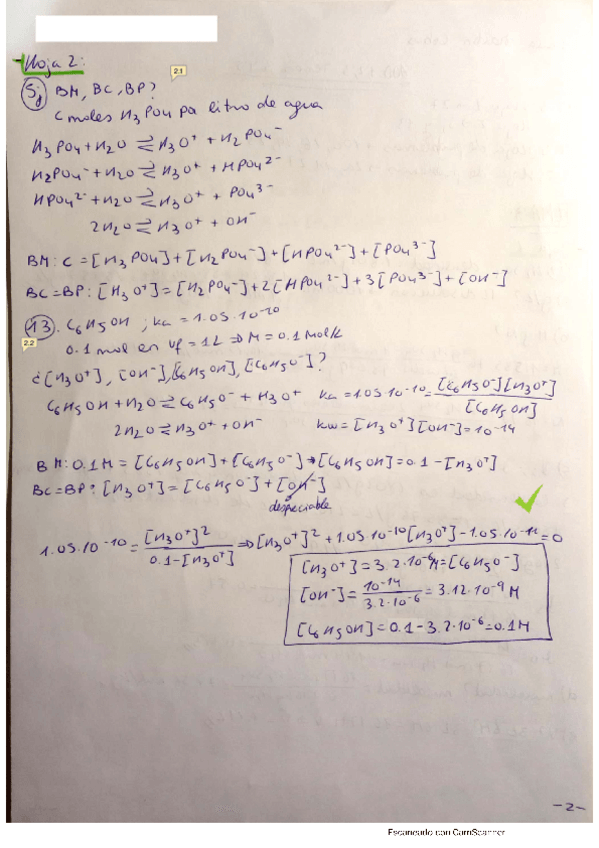 - Hoja 2:
2.1
5) BM, BC, BP?
C moles H3PO4 por litro de agua
H3PO4 + H2O ⇌ H3O⁺ + H2PO4⁻
H2PO4⁻ + H2O ⇌ H3O⁺ + HPO4²⁻
HPO4²⁻ + H2O ⇌ H3O⁺ + PO4³⁻
2H2O ⇌ H3O⁺ + OH⁻
BM: C = [H3PO4] + [H2PO4⁻] + [HPO4²⁻] + [PO4³⁻]
BC = BP: [H3O⁺] = [H2PO4⁻] + 2[HPO4²⁻] + 3[PO4³⁻] + [OH⁻]
13. C6H5OH ; ka = 1.05·10⁻¹⁰
2.2
0.1 mol en Vf = 1L ⇒ M = 0.1 Mol/L
¿[H3O⁺], [OH⁻], [C6H5OH], [C6H5O⁻]?
C6H5OH + H2O ⇌ C6H5O⁻ + H3O⁺ ka = 1.05·10⁻¹⁰ = [C6H5O⁻][H3O⁺] / [C6H5OH]
2H2O ⇌ H3O⁺ + OH⁻ kw = [H3O⁺][OH⁻] = 10⁻¹⁴
BM: 0.1M = [C6H5OH] + [C6H5O⁻] → [C6H5OH] = 0.1 - [H3O⁺]
BC = BP: [H3O⁺] = [C6H5O⁻] + [OH⁻]
despreciable
1.05·10⁻¹⁰ = [H3O⁺]² / 0.1 - [H3O⁺] ⇒ [H3O⁺]² + 1.05·10⁻¹⁰[H3O⁺] - 1.05·10⁻¹¹ = 0
[H3O⁺] = 3.2·10⁻⁶M = [C6H5O⁻]
[OH⁻] = 10⁻¹⁴ / 3.2·10⁻⁶ = 3.12·10⁻⁹ M
[C6H5OH] = 0.1 - 3.2·10⁻⁶ = 0.1M
-2-
Escaneado con CamScanner